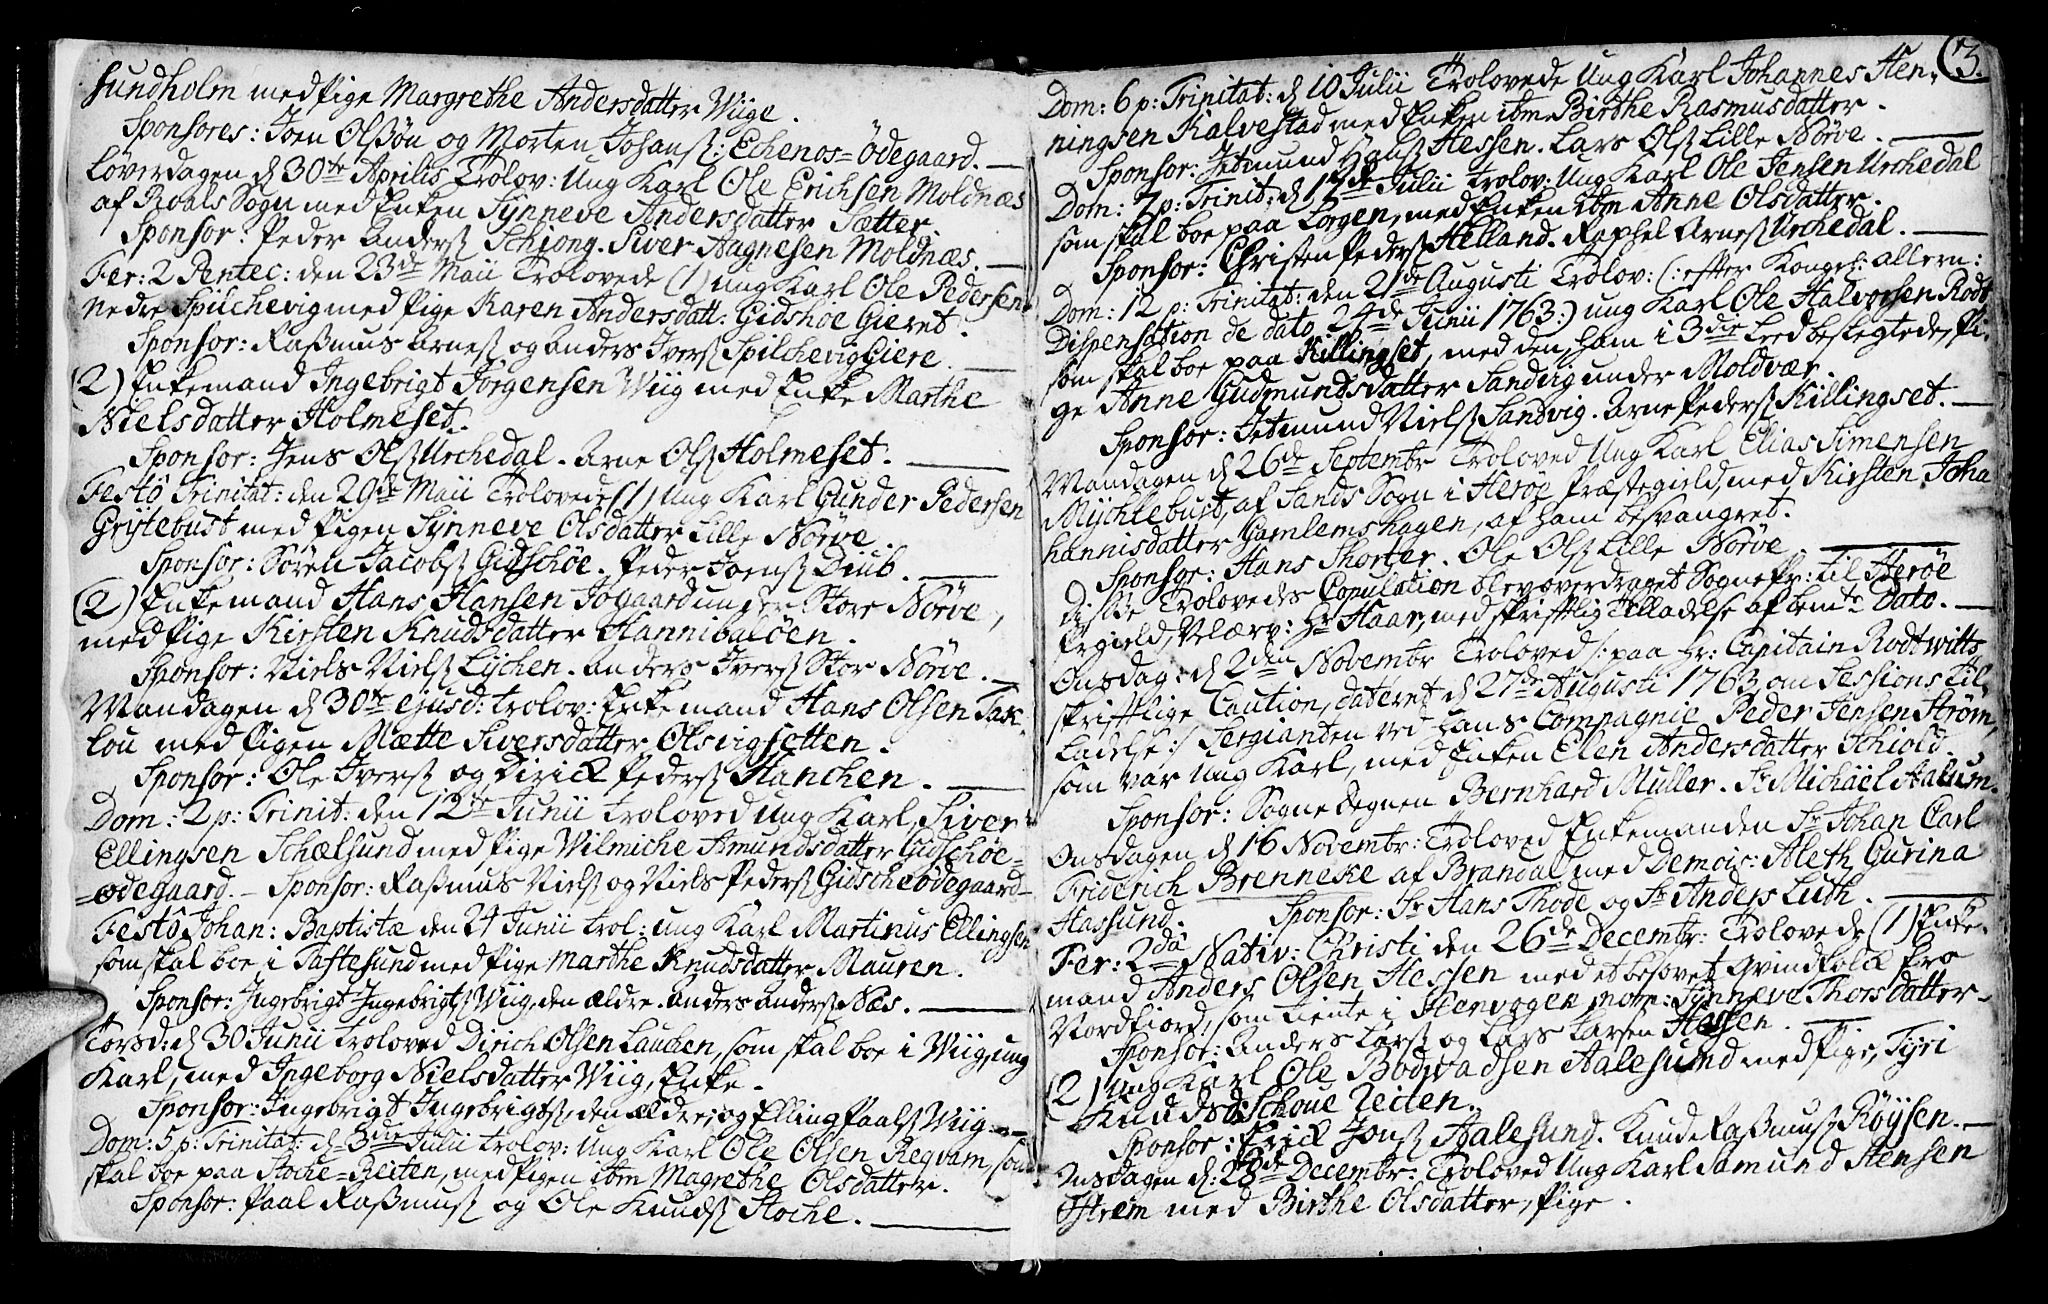 sundholm med Pige Margrethe Andersdatter Wiige.
Sponsores: Joen Olssøn og Morten Johanss: Echenos=Ødegaard.
Løverdagen d 30te Aprilis Trolov: Ung Karl Ole Erichsen Moldnæs
af Roals Sogn med Enken Synneve Andersdatter Sætter.
Sponsor: Peder Anderss Schiong. Siver Hagnesen Moldnæs.
Fer: 2 Pentec: den 23de Maii Trolovede (1) ung Karl Ole Pedersen
Nedre Spilchevig med Pige Karen Andersdatt: Gidshoe Gieret.
Sponsor: Rasmus Arness og Anders Iverss Spilchevig Giere.
(2) Enkemand Ingebrigt Jørgensen Wiig med Enke Marthe
Nielsdatter Holmeset.
Sponsor: Jens Olss Urchedal. Arne Olss Holmeset.
Festo Trinitat: den 29de Maii Trolovede (1) Ung Karl Gunder Pedersen
Grytebust med Pigen Synneve Olsdatter Lille Nørve.
Sponsor: Søren Jacobss Gidschøe. Peder Joenss Diub.
(2) Enkemand Hans Hansen Jogaard under Store Nørve,
med Pige Kirsten Knudsdatter Hannibaløen.
Sponsor: Niels Nielss Lychen. Anders Iverss Stor Nørve.
Mandagen d 30te ejusd: trolov: Enkemand Hans Olsen Tax
lou med Pigen Mætte Siversdatter Olsvigsotten.
Sponsor: Ole Iverss og Dirick Pederss Hanchen.
Dom: 2 p: Trinit: den 12te Junii troloved ung Karl Siver
Ellingsen Schælsund med Pige Wilmiche Amundsdatter Gidschøe=
=ødegaard. Sponsor: Rasmus Nielss og Niels Pederss Gidscheødegaard
Festo Johan: Baptistæ den 24 Junii trol: ung Karl Martinus Ellingsen
som skal boe i Taftesund med Pige Marthe Knudsdatter Mauren.
Sponsor: Ingebrigt Ingebrigts Wiig, den ældre. Anders Anderss Næs.
Torsd: d 30 Junii troloved Dirich Olsen Lauchen, som skal boe i Wiig, ung
Karl, med Ingeborg Nielsdatter Wiig, Enke.
Sponsor: Ingebrigt Ingebrigtss, den ældre, og Elling Paalss Wiig
Dom: 5 p: Trinitat: d 3die Julii trolov: Ung Karl Ole Olsen Reqvam, som
skal boe paa Stoche=Reiten, med Pigen ibm Magrethe Olsdatter.
Sponsor: Paal Rasmuss og Ole Knudss Stoche.
3.
Dom: 6 p: Trinitat: d 10 Julii Trolovede Ung Karl Johannes Hen-
ningsen Kalvestad med Enken ibm Birthe Rasmusdatter.
Sponsor: Jetmund Hanss Hessen. Lars Olss Lille Nørve.
Dom: 7 p: Trinit: d 17de Julii trolov: Ung Karl Ole Jensen Urchedal
som skal boe paa Lorgen, med Enken ibm Anne Olsdatter.
Sponsor: Christen Pederss Helland. Raphel Arness Urchedal.
Dom: 12 p: Trinitat: den 21de Augusti Trolov: (: efter Kongel: allern:
Dispensation de dato 24de Junii 1763:) ung Karl Ole Halvorsen Rødt
som skal boe paa Killingset, med den, ham i 3die Leed beslegtede, Pi-
ge Anne Gudmundsdatter Sandvig under Moldvær.
Sponsor: Jetmund Nielss Sandvig. Arne Pederss Killingset.
Mandagen d 26de Septembr Troloved Ung Karl Elias Simensen
Mychlebust, af Sands Sogn i Herøe Præstegield, med Kirsten Joha
hannisdatter Gamlemshagen, af ham besvangret.
Sponsor: Hans Shorter. Ole Olss Lille Nørve.
Disse Trolovedes Copulation blev overdraget SognePr: til Herøe
Prgield, Velærv: Hr Haar, med skriftlig Tilladelse af bemte Dato.
Onsdag: d 2den Novembr Troloved /: paa Hr: Capitain Rodtwitts
skriftlige Caution, dateret d 27de Augusti 1763, om Sessions Til-
ladelse :/ Sergianten ved hans Compagnie Peder Jensen Strøm,
som var ung Karl, med Enken Elen Andersdatter Schiold.
Sponsor: Sognedegnen Bernhard Müller. Sr Michäel Aalum.
Onsdagen d 16 Novembr: Troloved Enkemanden Sr Johan Carl
Friderich Brenneke af Brandal med Demois: Aleth Gurina
Hassund. Sponsor: Sr Hans Thode og Sr Anders Luth.
Fer: 2da Nativ: Christi den 26de Decembr: Trolovede (1) Enke-
mand Anders Olsen Hessen med et besovet Qvindfolk fra
Nordfiord, som tiente i Hervogen, nom: Synneve Thorsdatter
Sponsor: Anders Larss og Lars Larsen Hessen.
(2) Ung Karl Ole Bodvadsen Aalesund med Pige, Tyri
Knudsd: Schoue Reiten.
Sponsor: Erick Jonss Aalesund. Knud Rasmuss Røysen.
Onsdagen d: 28de Decembr: Troloved Ung Karl Samund Stensen
Østrem med Birthe Olsdatter, Pige.